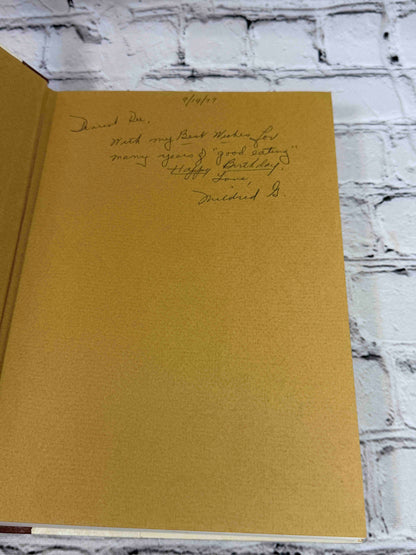 9/19/77
Dearest Dee,
With my Best Wishes for
many years of "good eating"
Happy Birthday.
Love,
Mildred G.